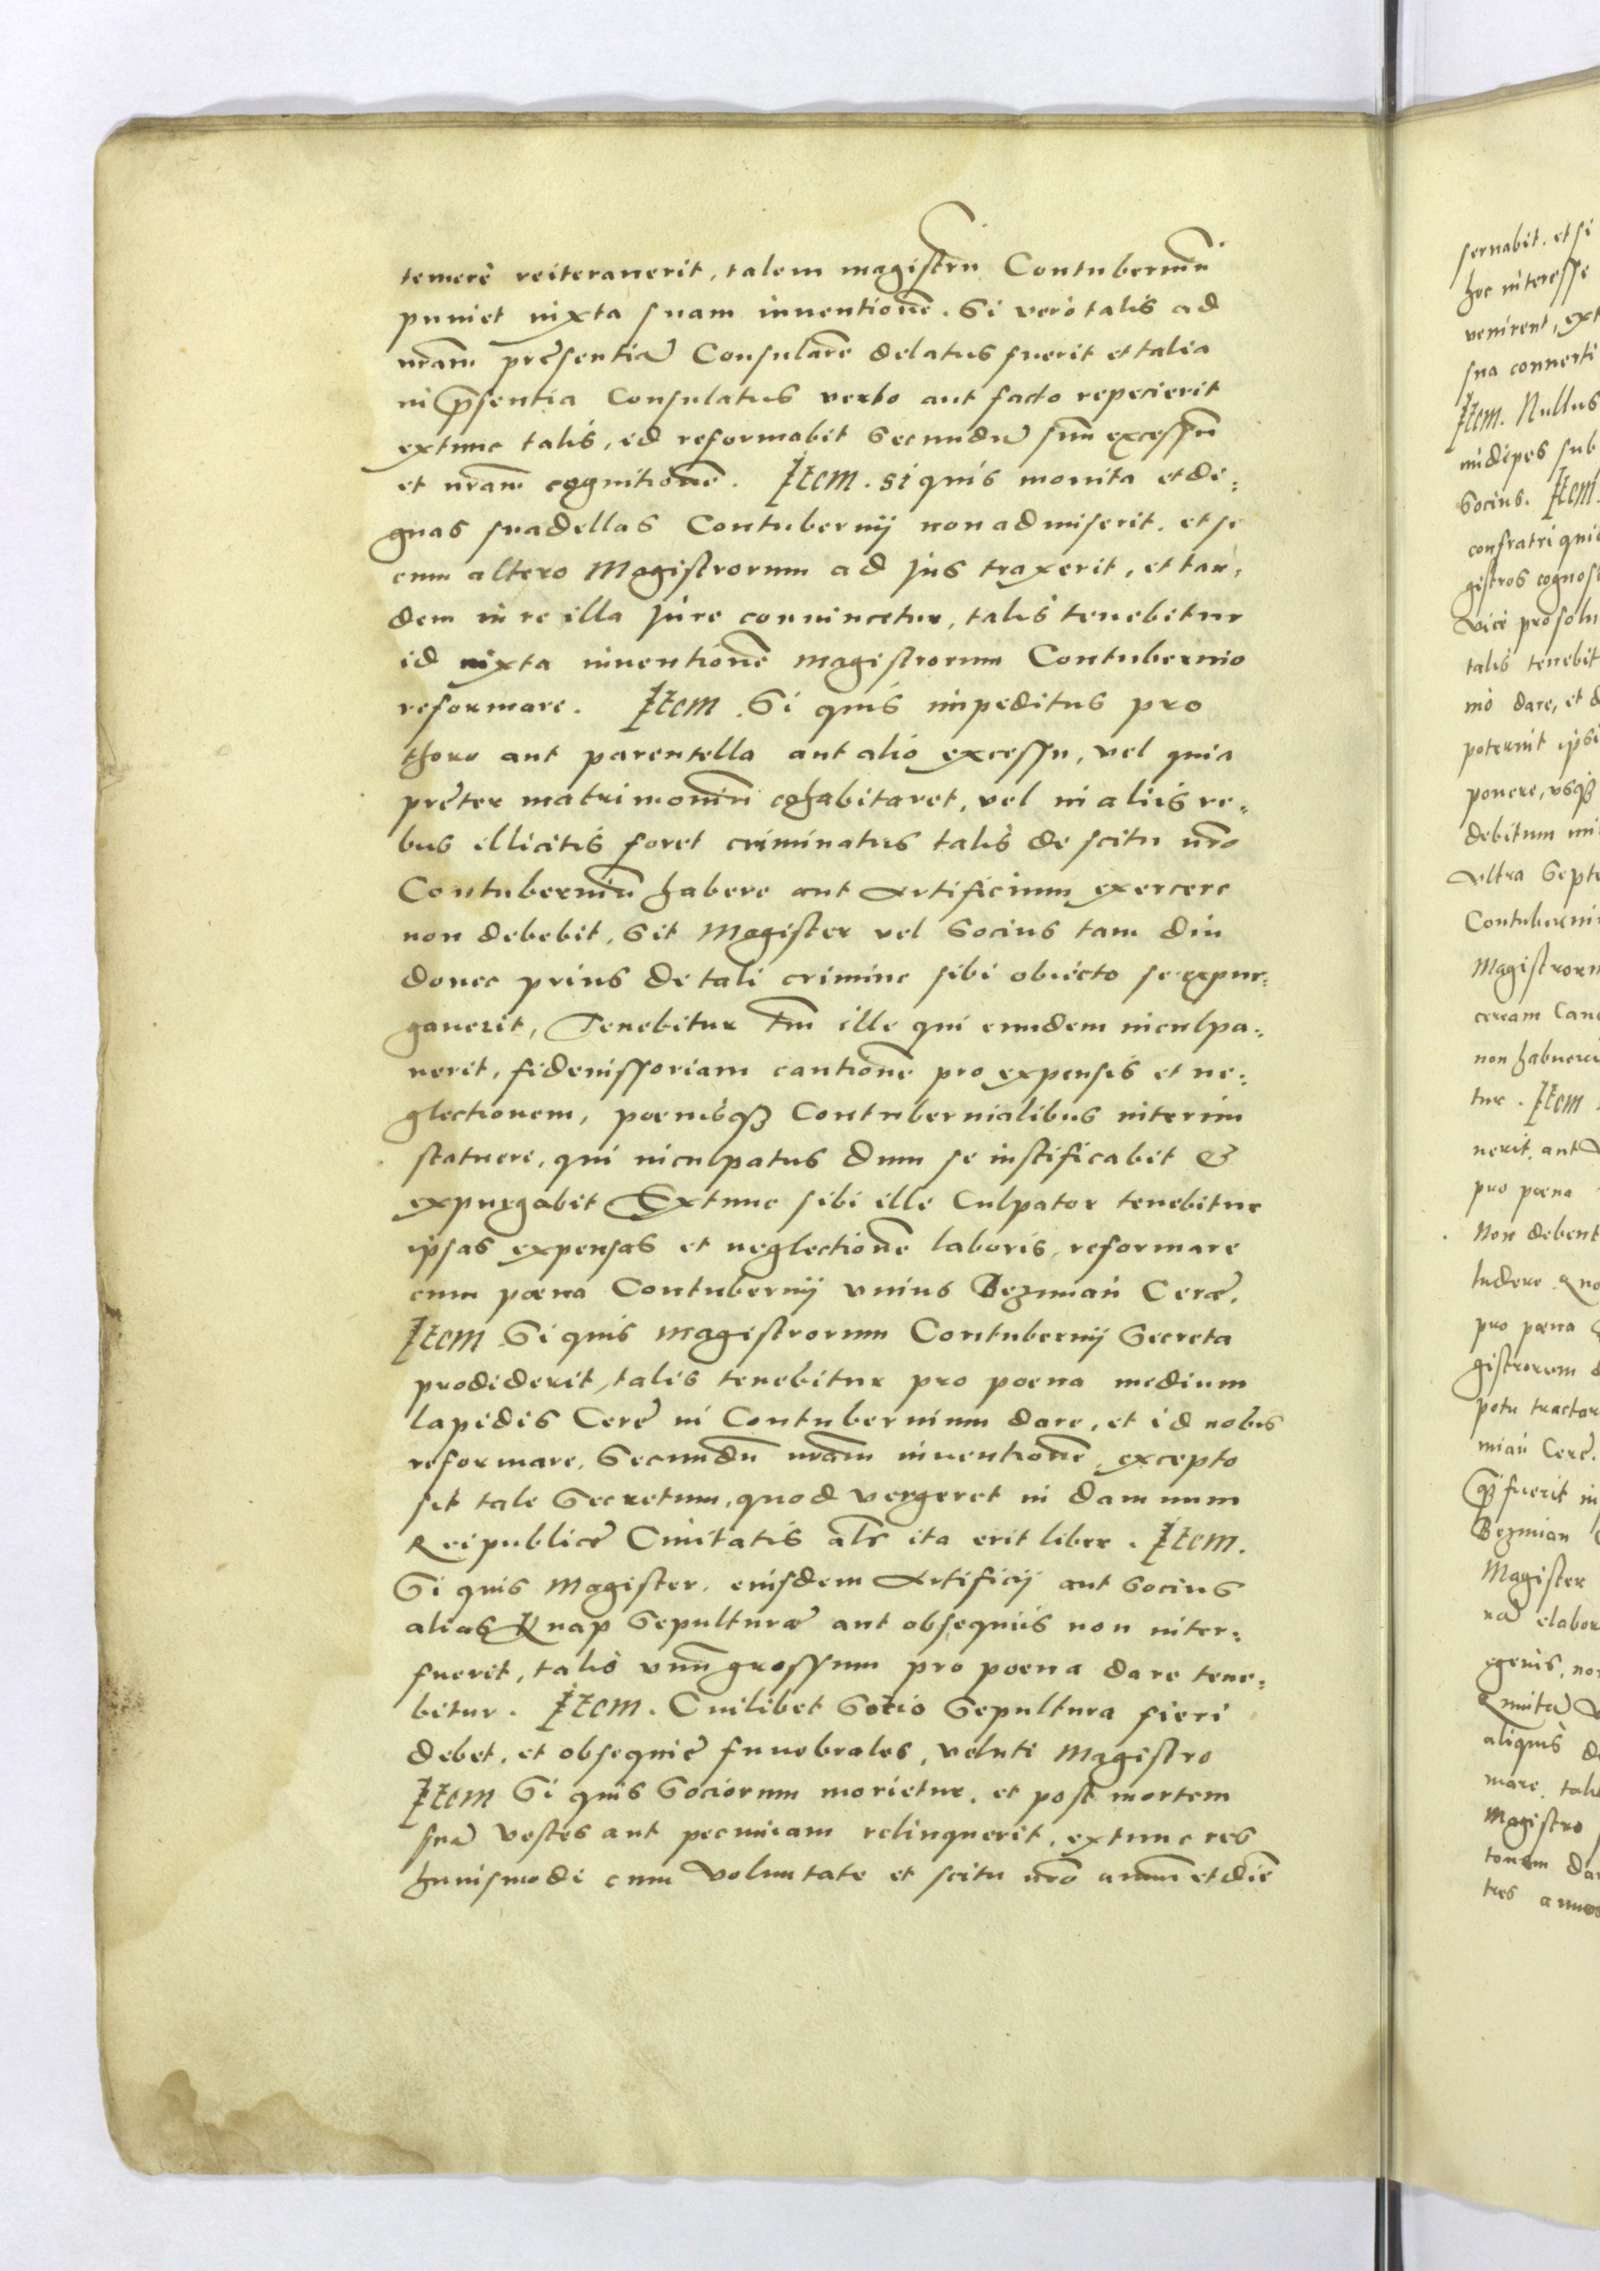 temerè reiterauerit, talem magistrū Contuberniū
puniet iuxta suam inuentionē. Si verò talis ad
nrām pręsentiā Consularē delatus fuerit et talia
in p̄sentia Consulatus verbo aut facto repecierit
extunc talis, id reformabit Secundū suū excessū
et nrām cognitionē. Item. si quis monita et di:
gnas suadellas Contubernij non admiserit, et se
cum altero Magistrorum ad jus traxerit, et tan,
dem in re illa jure conuincetur, talis tenebitur
id iuxta inuentionē magistrorum Contubernio
reformare. Item. Si quis impeditus pro
thoro aut parentella aut alio excessu, vel quia
pręter matrimoniū cohabitaret, vel in aliis re,
bus illicitis foret criminatus talis de scitu nrō
Contuberniū habere aut Artificium exercere
non debebit, Sit Magister vel Socius tam diu
donec prius de tali crimine sibi obiecto se expur:
gauerit, Tenebitur tm̄ ille qui eundem inculpa:
uerit, fideiussoriam cautionē pro expensis et ne:
glectionem, poenisqȝ Contubernialibus interim
statuere, qui inculpatus dum se iustificabit &
expurgabit Extunc sibi ille Culpator tenebitur
ipsas expensas et neglectionē laboris, reformare
cum poena Contubernij vnius Bezmian Cerę.
Item Si quis magistrorum Contubernij Secreta
prodiderit, talis tenebitur pro poena medium
lapidis Cerę in Contubernium dare, et id nobis
reformare, Secundū nrām inuentionē, excepto
sit tale Secretum, quod vergeret in damnum
Reipublicę Ciuitatis als̄ ita erit liber. Item.
Si quis Magister, eiusdem Artificij aut Socius
alias Knap Sepulturę aut obsequiis non inter:
fuerit, talis vnū grossum pro poena dare tene:
bitur. Item. Cuilibet Socio Sepultura fieri
debet, et obsequię funebrales, veluti Magistro
Item Si quis Sociorum morietur, et post mortem
suā vestes aut pecuniam relinquerit, extunc res
huiusmodi cum Voluntate et scitu nrō annū et diē
seruabit. et si
hoc interesse
venirent, ext
sua conuerti
Item. Nullus
nudipes sub
Socius. Item.
confratri qui
gistros cognos
Vice pro solu
talis tenebit
nio dare, et d
poterint ipsi
ponere, vsqȝ
debitum
Vltra Septi
Contuberni
Magistroru
ceream Can
non habueri
tur. Item
uerit, aut
pro poena
Non debent
ludere
pro poena
gistrorum d
potu tractar
mian Cerę.
fuerit in
Bezmian
Magister
rā elabor
egenis, non
Quintā
aliquis de
mare, talis
Magistro
dar
tres annos